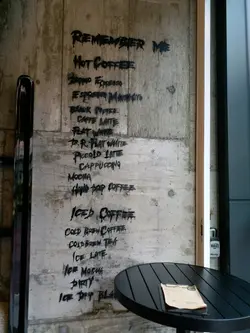 REMEMBER ME
HOT COFFEE
ESPRESSO
ESPRESSO MACCHIATO
BLACK COFFEE
CAFFE LATTE
FLAT WHITE
D.R. FLAT WHITE
PICCOLO LATTE
CAPPUCCINO
MOCHA
HAND DRIP COFFEE
ICED COFFEE
COLD BREW COFFEE
COLD BREW
ICE LATTE
ICE MOCHA
DIRTY
ICE DRIP BLACK